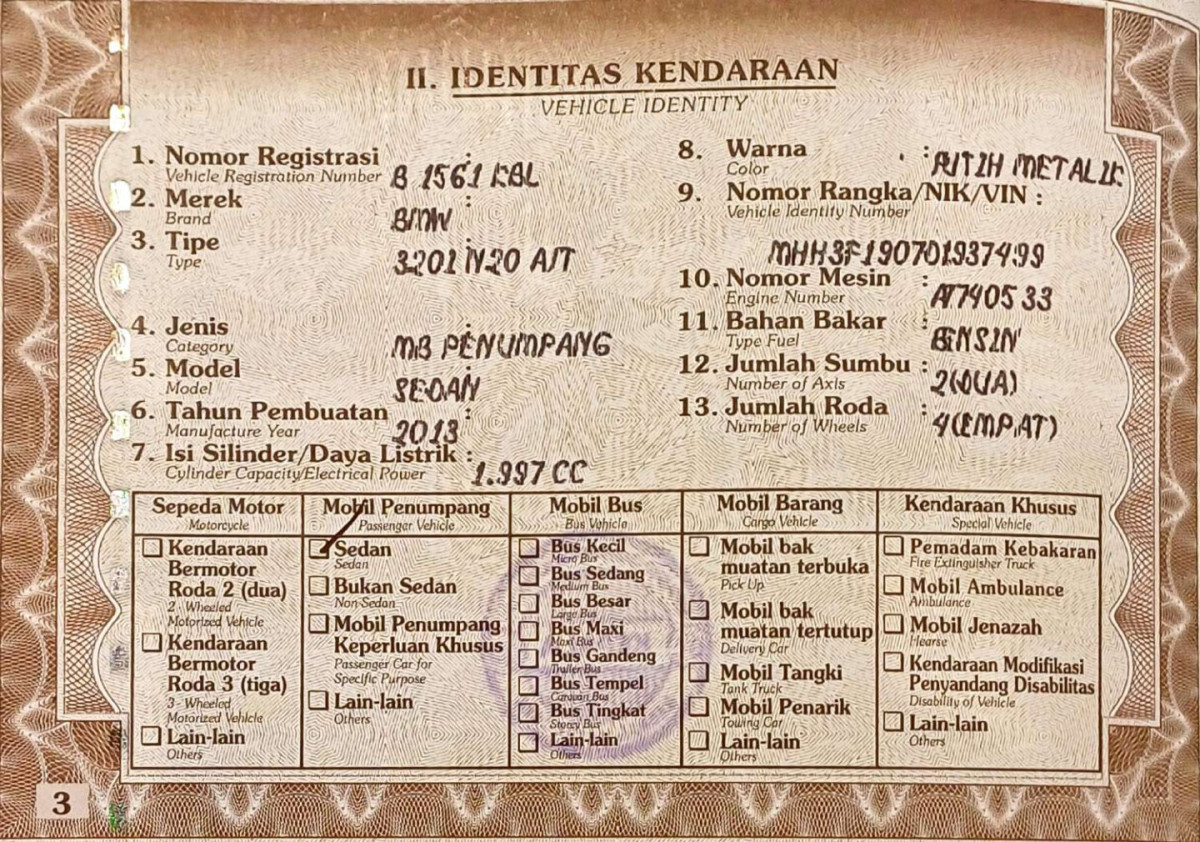 II. IDENTITAS KENDARAAN
VEHICLE IDENTITY
1. Nomor Registrasi : B 1561 KBL
Vehicle Registration Number
2. Merek : BMW
Brand
3. Tipe : 320I N20 A/T
Type
4. Jenis : MB PENUMPANG
Category
5. Model : SEDAN
Model
6. Tahun Pembuatan : 2013
Manufacture Year
7. Isi Silinder/Daya Listrik : 1.997 CC
Cylinder Capacity/Electrical Power
8. Warna : PUTIH METALIK
Color
9. Nomor Rangka/NIK/VIN :
Vehicle Identity Number
10. Nomor Mesin :
Engine Number
11. Bahan Bakar : BENSIN
Type Fuel
12. Jumlah Sumbu : 2(DUA)
Number of Axis
13. Jumlah Roda : 4(EMPAT)
Number of Wheels
Sepeda Motor
Motorcycle
Kendaraan
Bermotor
Roda 2 (dua)
2 - Wheeled
Motorized Vehicle
Kendaraan
Bermotor
Roda 3 (tiga)
3 - Wheeled
Motorized Vehicle
Lain-lain
Others
Mobil Penumpang
Passenger Vehicle
Sedan
Sedan
Bukan Sedan
Non-Sedan
Mobil Penumpang
Keperluan Khusus
Passenger Car for
Specific Purpose
Lain-lain
Others
Mobil Bus
Bus Vehicle
Bus Kecil
Micro Bus
Bus Sedang
Medium Bus
Bus Besar
Large Bus
Bus Maxi
Maxi Bus
Bus Gandeng
Trailer Bus
Bus Tempel
Caravan Bus
Bus Tingkat
Storey Bus
Lain-lain
Others
Mobil Barang
Cargo Vehicle
Mobil bak
muatan terbuka
Pick Up
Mobil bak
muatan tertutup
Delivery Car
Mobil Tangki
Tank Truck
Mobil Penarik
Towing Car
Lain-lain
Others
Kendaraan Khusus
Special Vehicle
Pemadam Kebakaran
Fire Extinguisher Truck
Mobil Ambulance
Ambulance
Mobil Jenazah
Hearse
Kendaraan Modifikasi
Penyandang Disabilitas
Disability of Vehicle
Lain-lain
Others
3